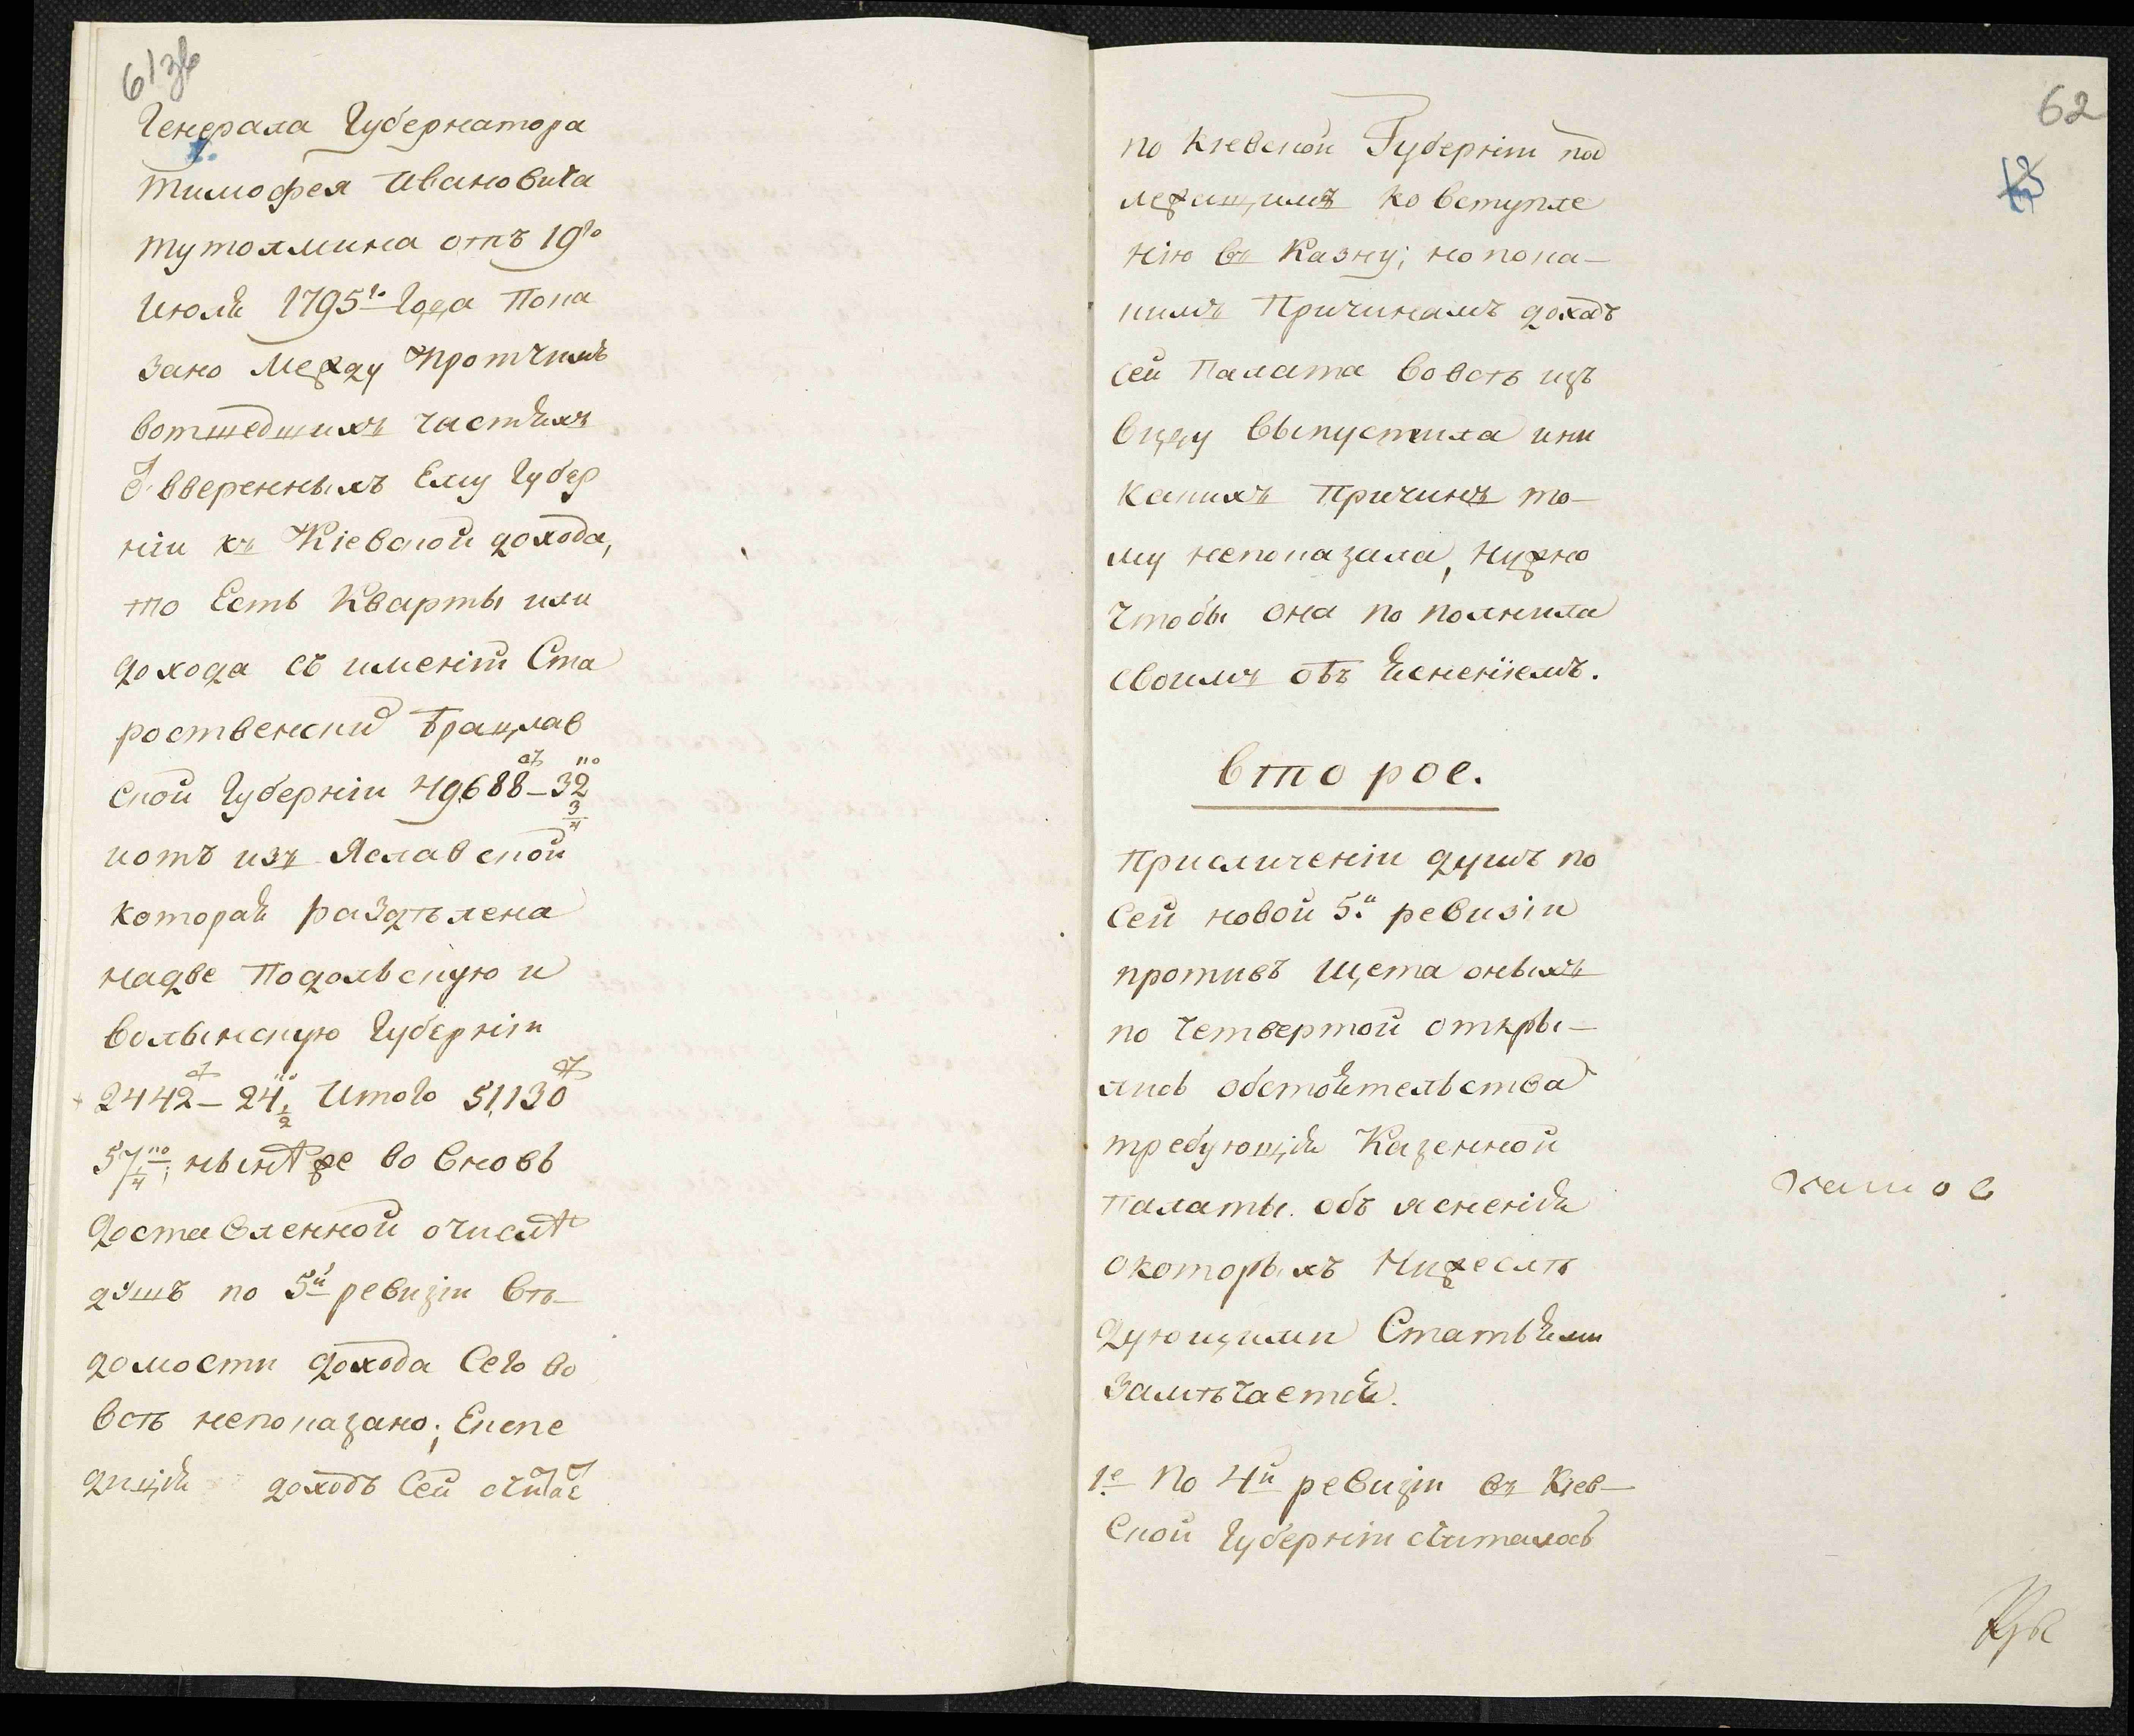 61 зв
Генерала Губернатора
Тимофея Ивановича
Тутолмина отъ 19го
Июля 1795го Года Пока
зано Между протчимъ
вотшедшихъ частяхъ
Ѿ вверенныхъ Ему Губер
нiи къ Кiевской дохода,
то Есть Кварты или
дохода съ именiи Ста
роственски Брацлав
ской Губернiи 49688–32 3/4
и отъ изъ Яславской
которая раздѣлена
на две Подольскую и
волынскую Губернiи
2442–24 1/2 Итого 51,130
57 1/4; нынѣ же во вновь
доставленной о числѣ
душъ по 5й ревизiи вѣ–
домости дохода Сего во
всѣ непоказано; Експе
дицiя доходъ Сей считае
62
13
по Кiевской Губернiи под
лежащимъ ко вступле
нiю въ Казну; но по ка–
кимъ Причинамъ доходъ
сей Палата вовсѣ изъ
виду выпустила и ни
какихъ Причинъ то–
му непоказала, нужно
чтобы она по полнила
своимъ обѣясненiемъ.
второе.
При сличенiи душъ по
Сей новой 5й ревизiи
противъ щета оныхъ
по четвертой откры–
лись обстоятельства
требующiя Казенной
Палаты объ ясненiя
о которыхъ Нижеслѣ
дующими Статьями
замѣчается.
1е По 4й ревизiи въ Кiев–
Ской Губернiи считалось